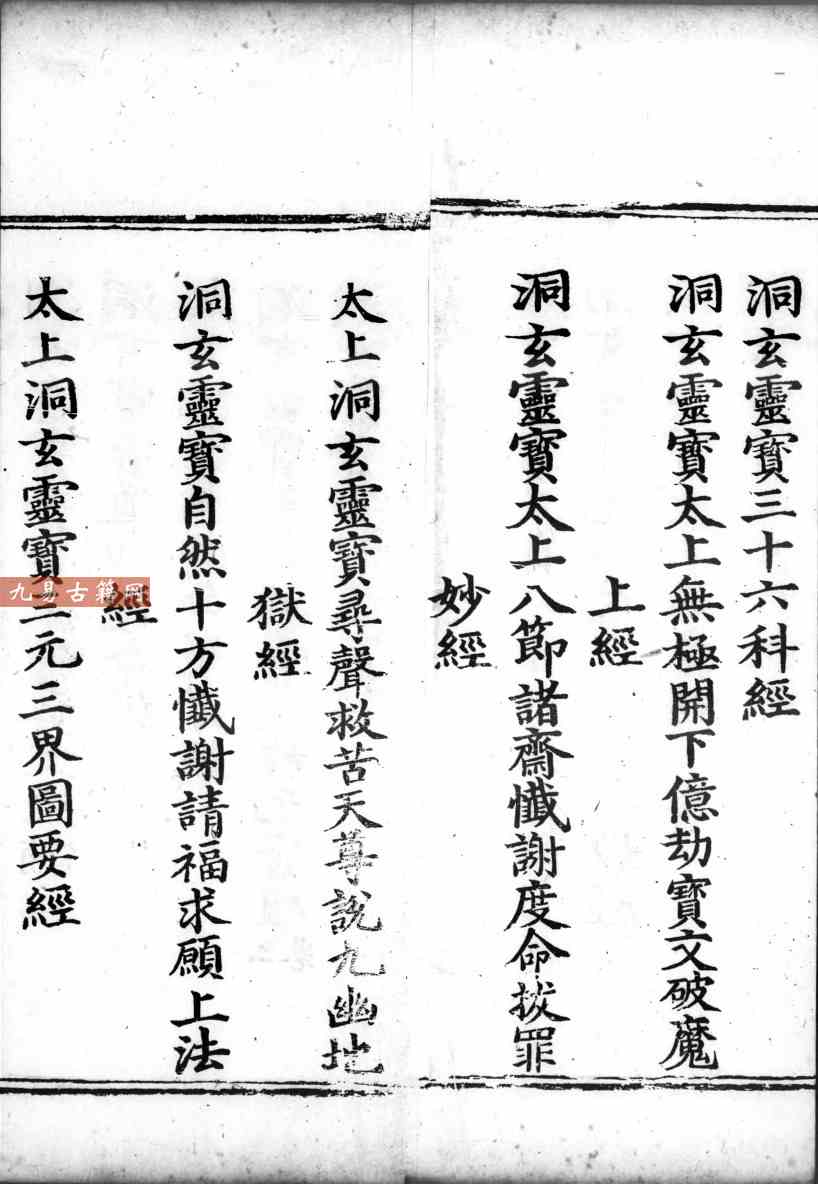 洞玄靈寶三十六科經
洞玄靈寶太上無極開下億劫寶文破魔
上經
洞玄靈寶太上八節諸齋懺謝度命拔罪
妙經
太上洞玄靈寶尋聲救苦天尊說九幽地
獄經
洞玄靈寶自然十方懺謝請福求願上法
經
太上洞玄靈寶三元三界圖要經
九易古籍网